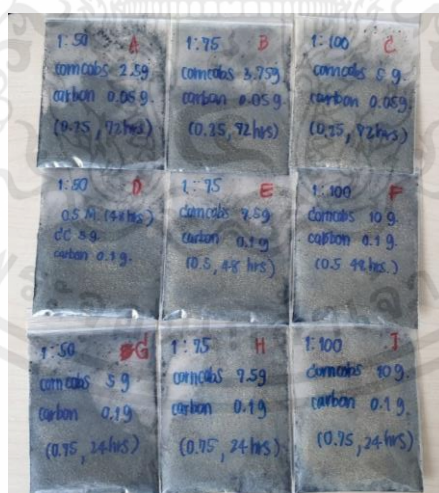 1:50 A
corncobs 2.5g
carbon 0.05g.
(0.25, 72hrs)
1:75 B
corncobs 3.75g
carbon 0.05g.
(0.25, 72hrs)
1:100 C
corncobs 5g.
carbon 0.05g.
(0.25, 72hrs)
1:50 D
0.5 M. (48hrs)
cc 5g.
carbon 0.1g.
1:75 E
corncobs 7.5g
carbon 0.1g
(0.5, 48hrs)
1:100 F
corncobs 10g.
carbon 0.1g
(0.5 48hrs.)
1:50 G
corncobs 5g
carbon 0.1g
(0.75, 24hrs)
1:75 H
corncobs 7.5g
carbon 0.1g
(0.75, 24hrs)
1:100 I
corncobs 10g.
carbon 0.1g.
(0.75, 24hrs)